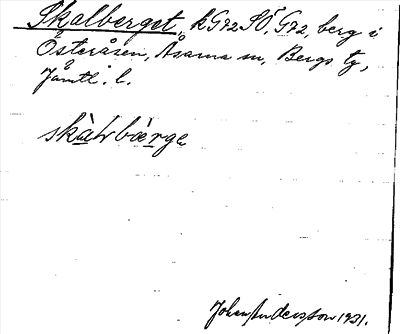 Skalberget, kG72SÖ, G72, berg i
Österåsen, Åsarna sn, Bergs tg,
Jämtl. l.
skàlrbæ̀rge
Johan Andersson 1931.